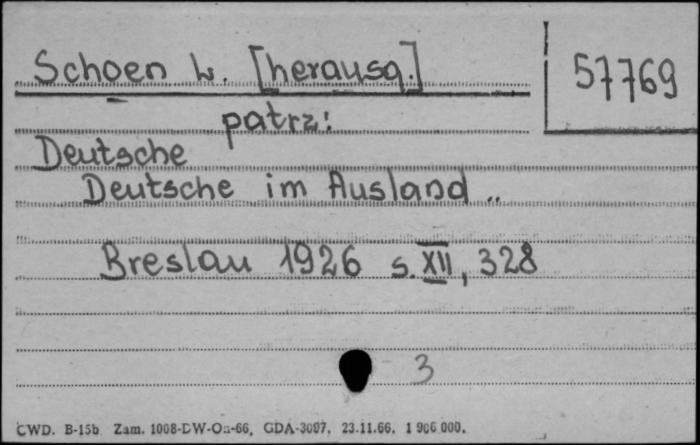 Schoen W. [herausg.] 57769
patrz:
Deutsche
Deutsche im Ausland ..
Breslau 1926 s. XII, 328
3
CWD. B-15b. Zam. 1008-DW-Oa-66. GDA-3097. 23.11.66. 1 906 000.